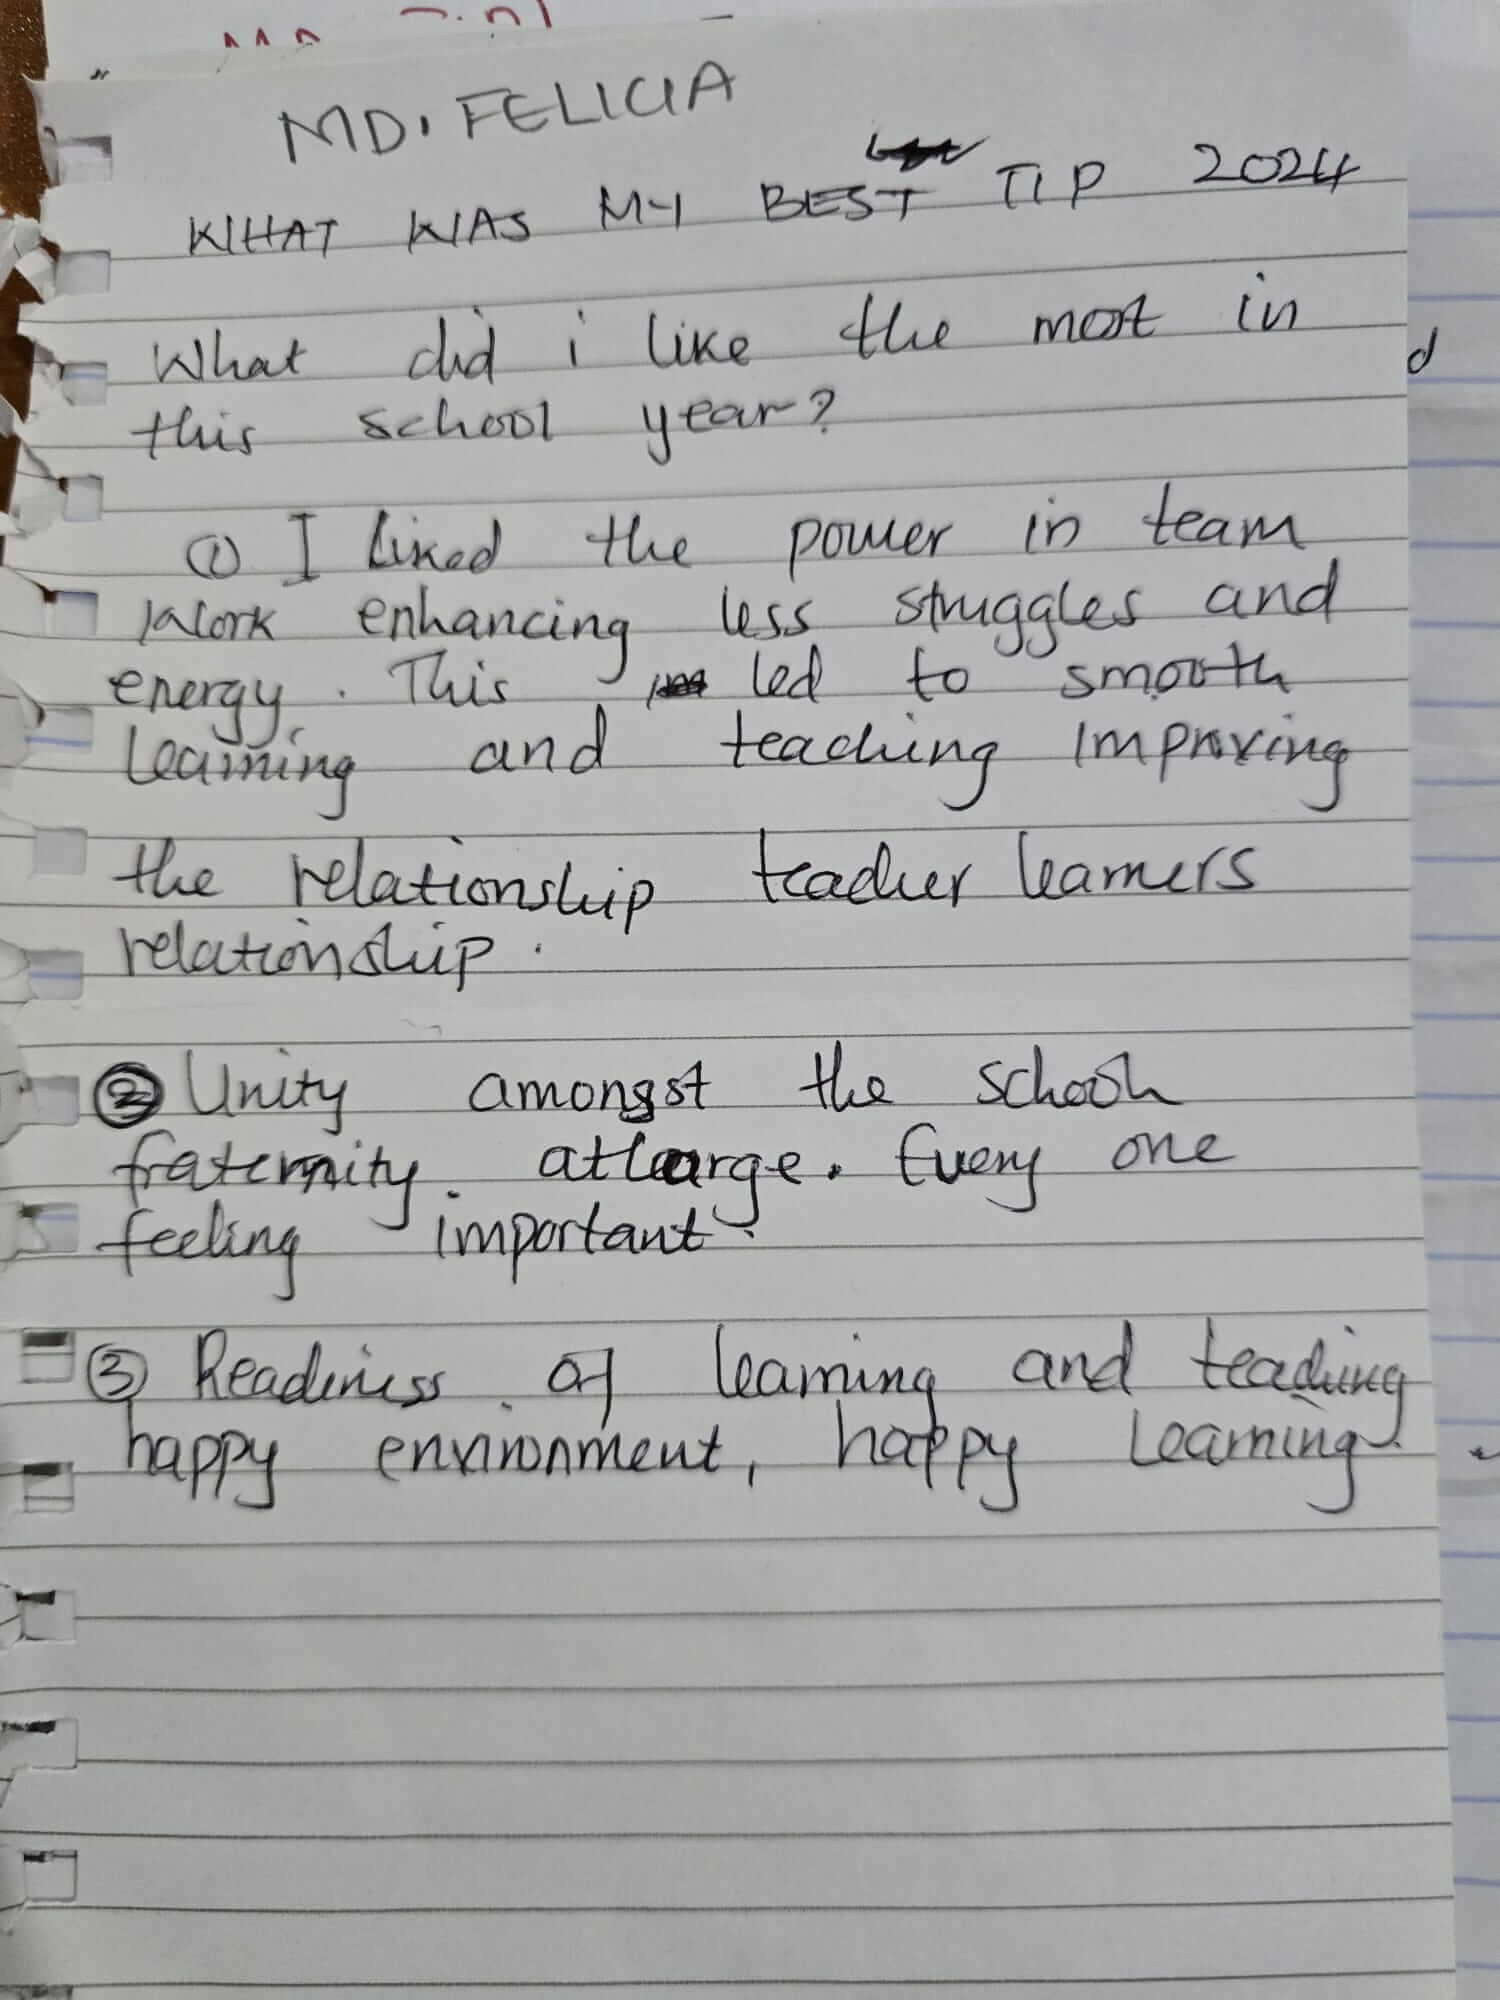 MD. FELICIA
WHAT WAS MY BEST TIP 2024
What did i like the most in
this school year?
① I liked the power in team
work enhancing less struggles and
energy. This led to smooth
learning and teaching improving
the relationship teacher learners
relationship.
② Unity amongst the school
fraternity. atlarge. Every one
feeling important.
③ Readiness of learning and teaching
happy environment, happy learning.